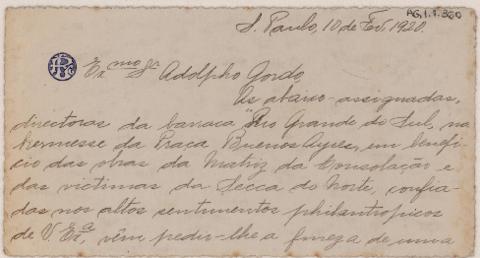 AG.1.1.350
S. Paulo, 10 de Fev. 1920.
Ex.mo Sr. Adolpho Gordo,
As abaixo-assignadas,
directoras da barraca "Rio Grande do Sul, na
kermesse da Praça Buenos Ayres, em benefi-
cio das obras da Matriz da Consolação e
das victimas da Secca do Norte, confia-
das nos altos sentimentos philantropicos
de V. Ex.a, vêm pedir-lhe a fineza de uma